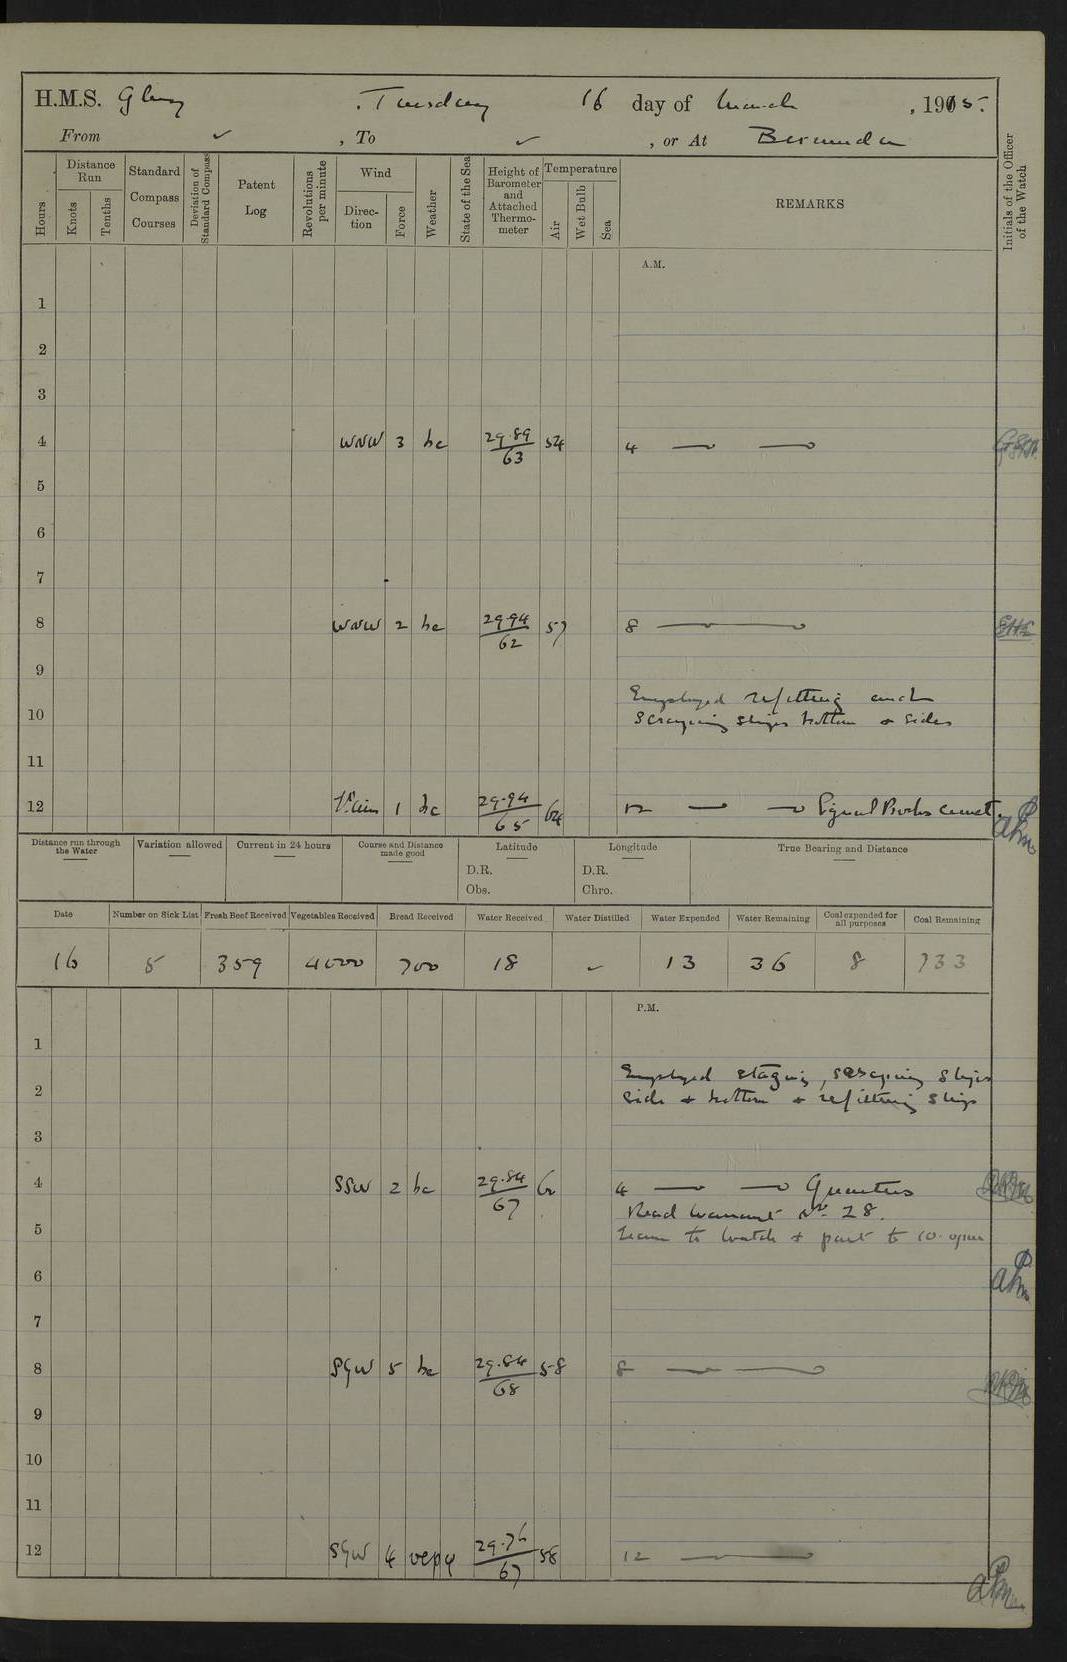 H.M.S. Glory , Tuesday 16 day of March , 1915.
From ✓ , To ✓ , or At Bermuda
Hours
Distance Run
Knots
Tenths
Standard Compass Courses
Deviation of Standard Compass
Patent Log
Revolutions per minute
Wind
Direction
Force
Weather
State of the Sea
Height of Barometer and Attached Thermometer
Temperature
Air
Wet Bulb
Sea
REMARKS
Initials of the Officer of the Watch
A.M.
1
2
3
4 WNW 3 bc 29.89/63 54 4
5
6
7
8 WNW 2 bc 29.94/62 57 8
9
Employed refitting and
10 scraping ships bottom & sides
11
12 1 bc 29.94/65 64 12 Signal Books correct.
Distance run through the Water
Variation allowed
Current in 24 hours
Course and Distance made good
Latitude
D.R.
Obs.
Longitude
D.R.
Chro.
True Bearing and Distance
Date Number on Sick List Fresh Beef Received Vegetables Received Bread Received Water Received Water Distilled Water Expended Water Remaining Coal expended for all purposes Coal Remaining
16 5 359 4000 700 18 ✓ 13 36 8 733
P.M.
1
Employed staging, scraping ships
2 side & bottom & refitting ship
3
4 SSW 2 bc 29.84/67 4 Quarters
Read Warrant No 28.
5 Leave to watch & part to 10.0pm
6
7
8 SSW 5 bc 29.84/68 58 8
9
10
11
12 SSW 4 29.76/67 58 12